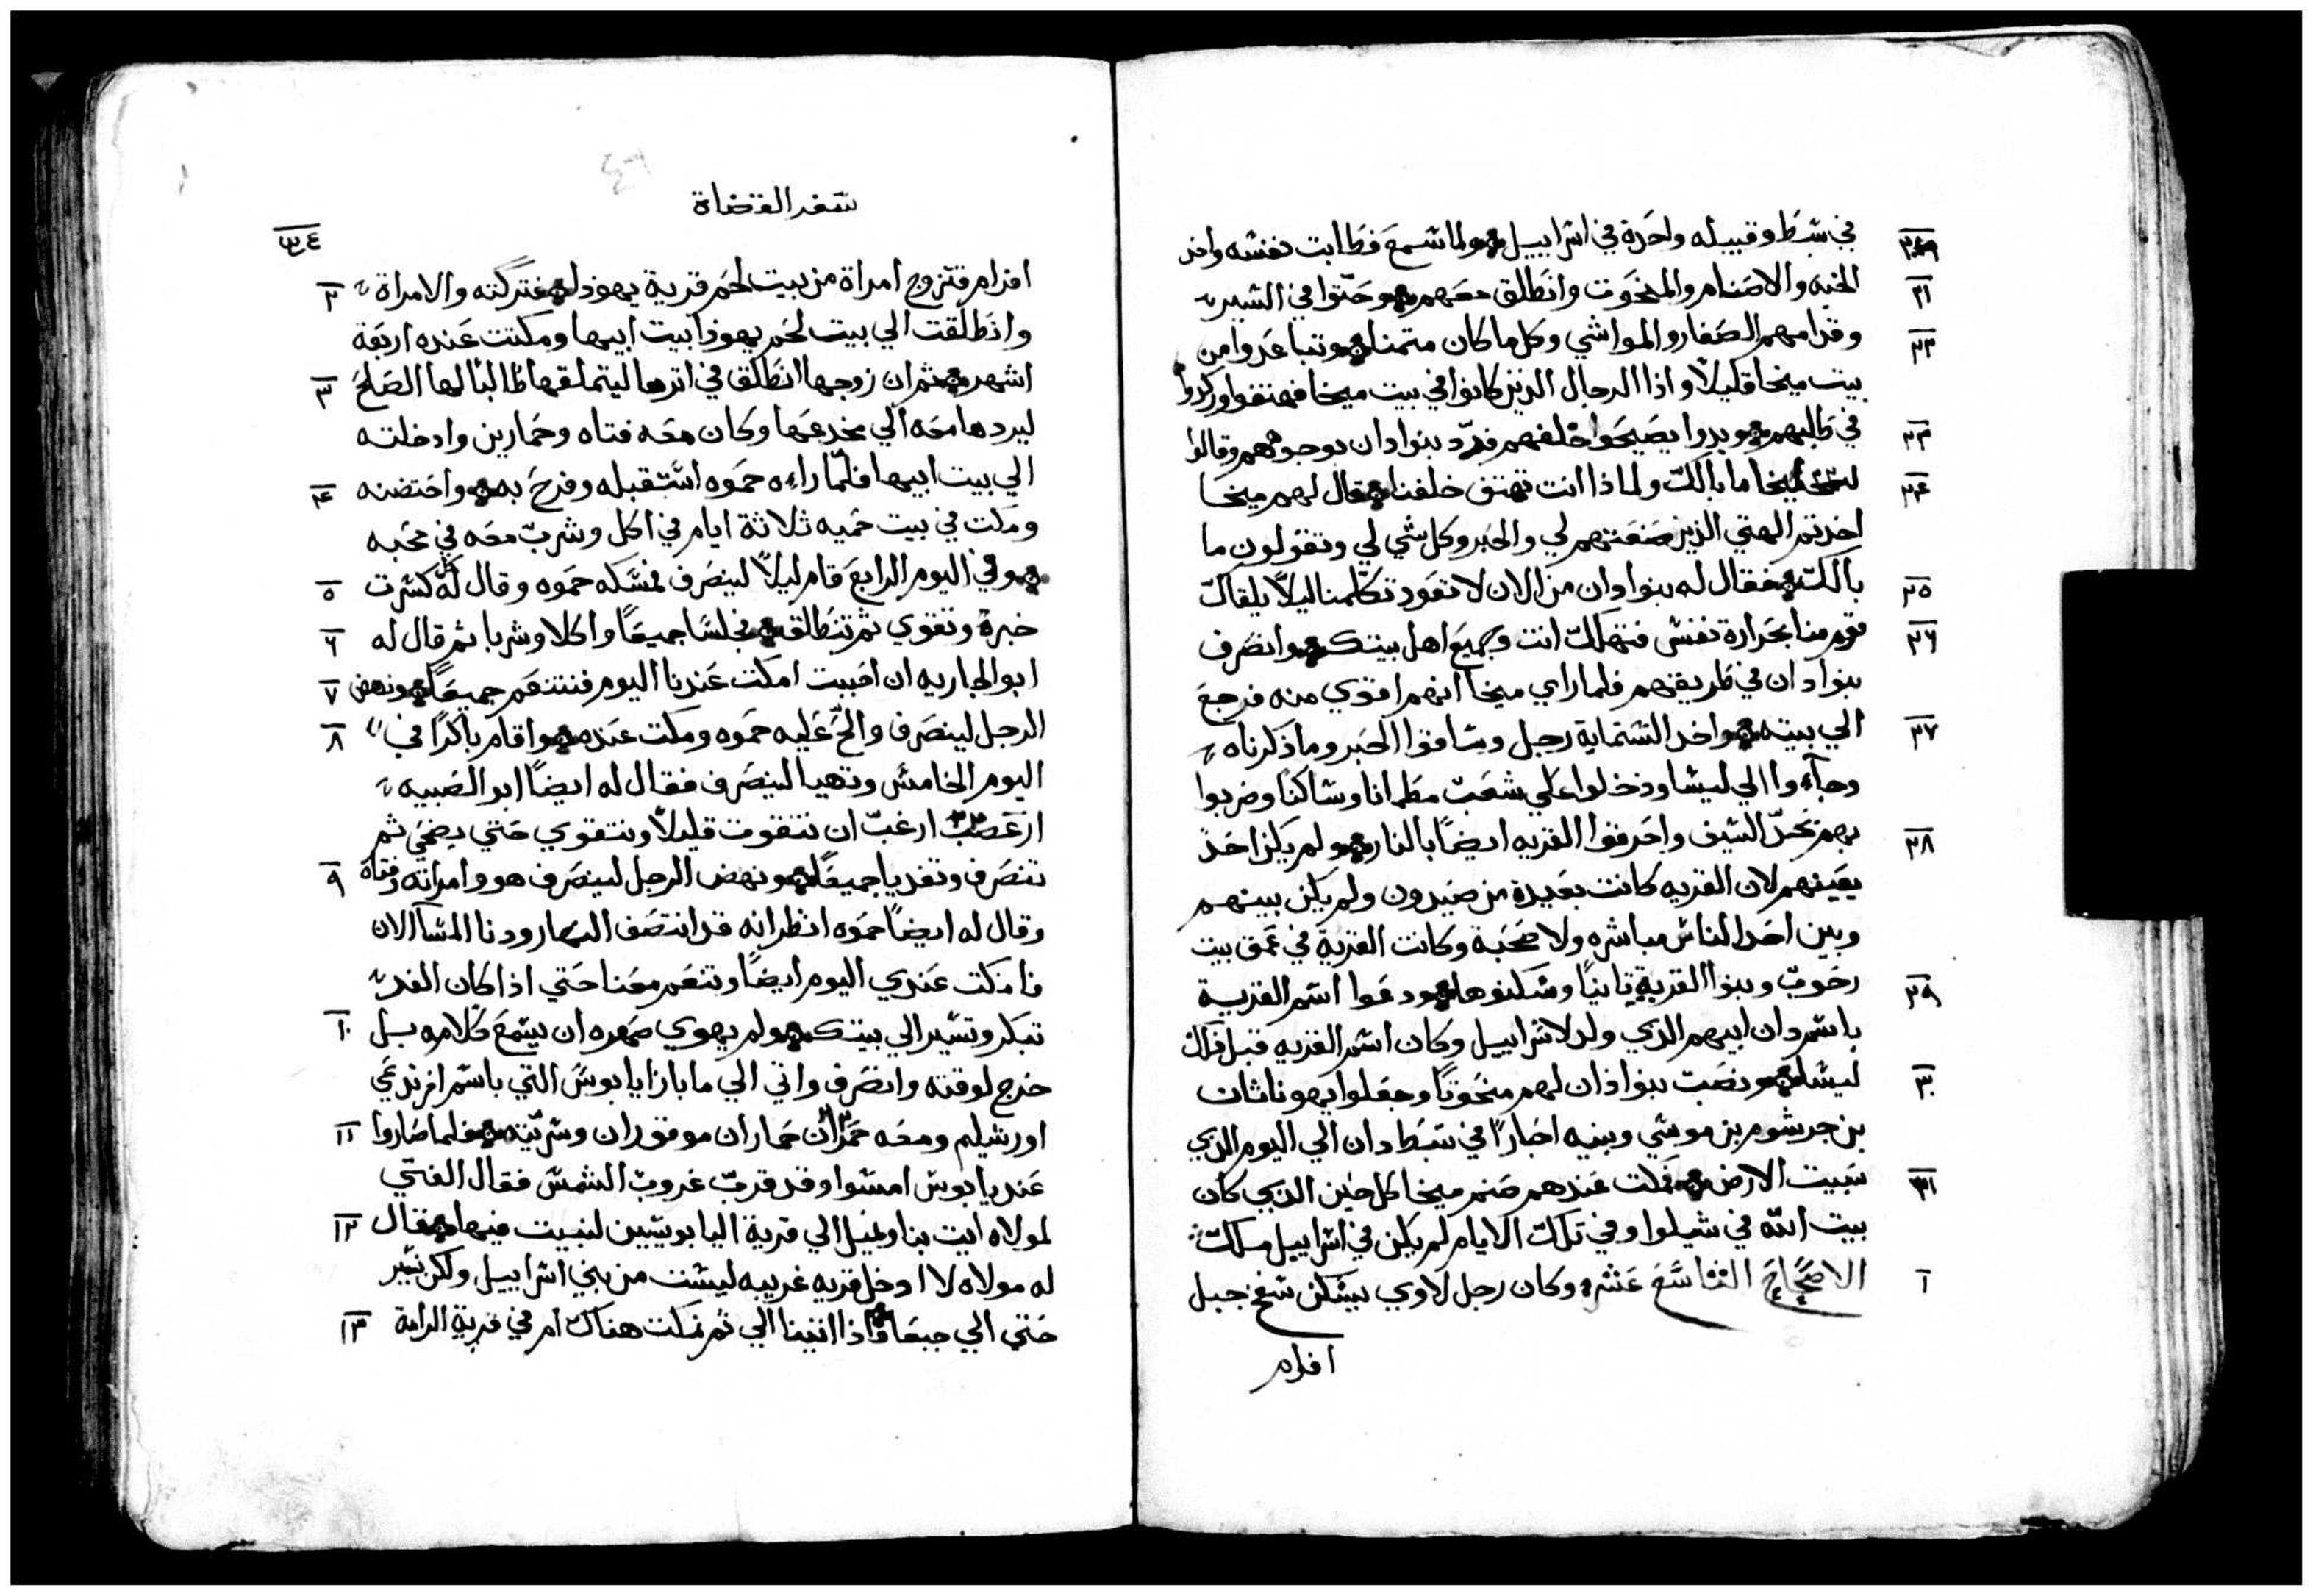 في شبط وقبيله واحدة في اشراييل ولما شمع فطابت نفشه واخد
الجبه والاصنام والمنحوت وانطلق معهم وحتوا في الشير
٢١
وقدامهم الصغار والمواشي وكل ما كان متمنا وتباعدوا من
٢٢
بيت ميخا قليلاً واذا الرجال الذين كانوا في بيت ميخا فهتفوا وركدوا
في طالبهم وبدوا يصيحوا خلفهم فردّ بنوا دان بوجوههم وقالوا
٢٣
لميخا ما بالك ولماذا انت تهتف خلفنا فقال لهم ميخا
٢٤
اخدتم الهتي الذين صنعتهم لي والحبر وكل شي لي وتقولون ما
بالك فقال له بنوا دان من الان لا تعود تكلمنا ليلاً يلقاك
٢٥
قوم منا بحرارة نفش فتهلك انت وجميع اهل بيتك وانصرف
٢٦
بنوا دان في طريقهم فلما راي ميخا انهم اقوي منه فرجع
الي بيته واخد الشتماية رجل وشاقوا الحبر وما ذكرناه
٢٧
وجآءوا الي ليشا ودخلوا علي شعب مطمانا وشاكنا وضربوا
بهم بحدّ الشيف واحرقوا القريه ايضاً بالنار ولم يكن احد
٢٨
يعينهم لان القريه كانت بعيدة من صيدون ولم يكن بينهم
وبين احد الناس مباشره ولا صحبة وكانت القرية في عمق بيت
رحوب وبنوا القرية ثانياً وشكنوها ودعوا اشم القرية
٢٩
باشم دان ابيهم الذي ولد لاشراييل وكان اشم القريه قبل ذلك
ليشا ونصب بنوا دان لهم منحوتاً وجعلوا يهوناثان
٣٠
بن جرشوم بن موشي وبنيه احباراً في شبط دان الي اليوم الذي
شبيت الارض فمكت عندهم صنم ميخا كل حين الذي كان
٣١
بيت الله في شيلوا وفي تلك الايام لم يكن في اشراييل ملك
الاصحاح التاشع عشر وكان رجل لاوي يشكن شفح جبل
١
افرام
شفر القضاة
افرام فتزوج امراة من بيت لحم قرية يهوذا فتركته والامراة
٢
وانطلقت الي بيت لحم يهوذا بيت ابيها ومكتت عنده اربعة
اشهر ثم ان زوجها انطلق في اترها ليتملقها طالباً لها الصلح
٣
ليردها معه الي مخدعها وكان معه فتاه وحمارين وادخلته
الي بيت ابيها فلما راءه حموه اشتقبله وفرح به واحتضنه
٤
ومكت في بيت حميه ثلاثة ايام في اكل وشرب معه في محبه
وفي اليوم الرابع قام ليلاً لينصرف فمشكه حموه وقال له كل كشرت
٥
خبزة وتقوي ثم تنطلق فجلسا جميعاً واكلا وشربا ثم قال له
٦
ابو الجاريه ان احببت امكت عندنا اليوم فنتنعم جميعاً ونهض
٧
الرجل لينصرف والحّ عليه حموه ومكت عنده واقام باكراً في
٨
اليوم الخامش وتهيا لينصرف فقال له ايضاً ابو الصبيه
ارغب ان تتقوت قليلاً وتتقوي حتي يضحي ثم
تنصرف وتغديا جميعاً ونهض الرجل لينصرف هو وامراته وفتاه
٩
وقال له ايضاً حموه انظر انه قد انتصف النهار ودنا المشآ الان
فامكت عندي اليوم ايضاً وتنعم معنا حتي اذا كان الغد
تبكر وتشير الي بيتك ولم يهوي صهره ان يشمع كلامه بل
١٠
خرج لوقته وانصرف واتي الي ما بازا يابوش التي باشم اخر تدعي
اورشليم ومعه حماران موقوران وشريته فلما صاروا
١١
عند يابوش امشوا وقد قرب غروب الشمش فقال الفتي
لمولاه ايت بنا ونميل الي قرية اليابوشيين لنبيت فيها فقال
١٢
له مولاه لا ادخل قريه غريبه ليشت من بني اشراييل ولكن نشير
حتي الي جبعا واذا اتينا الي ثم نمكت هناك ام في قرية الرامة
١٣